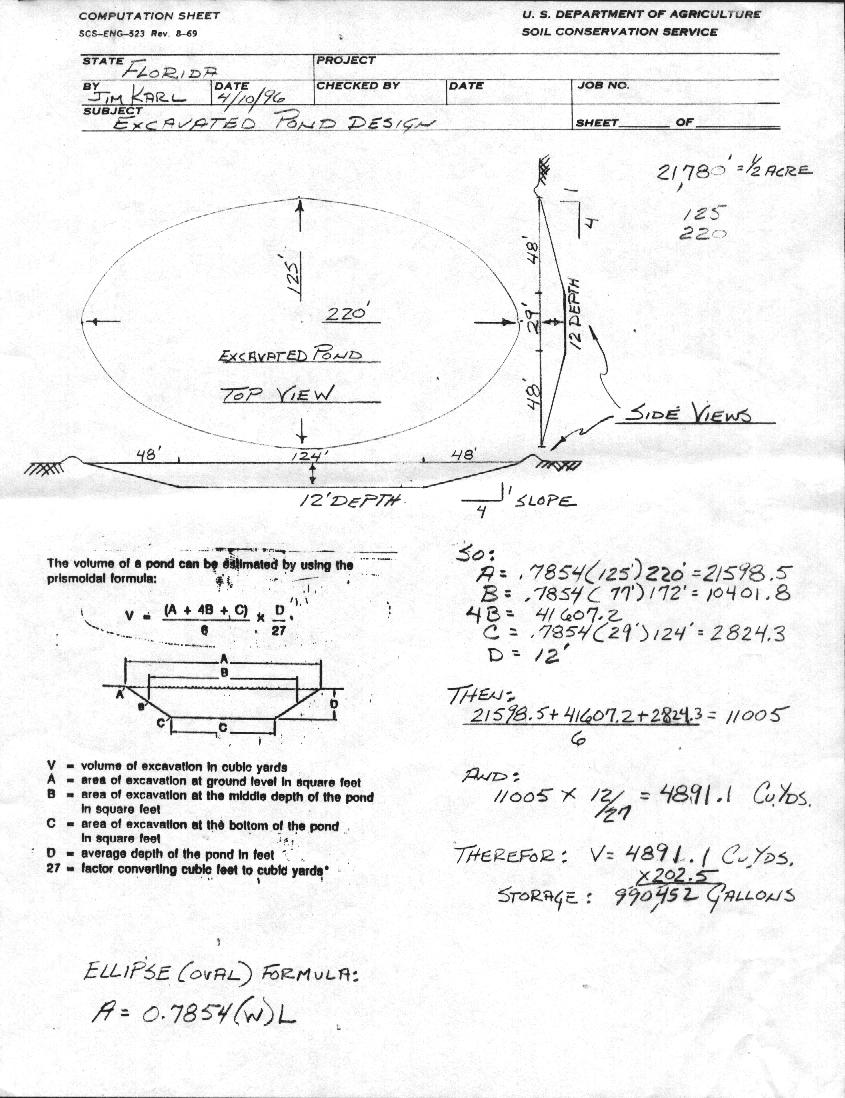 COMPUTATION SHEET
SCS-ENG-523 Rev. 8-69
U. S. DEPARTMENT OF AGRICULTURE
SOIL CONSERVATION SERVICE
STATE FLORIDA
PROJECT
BY JIM KARL
DATE 4/10/96
CHECKED BY
DATE
JOB NO.
SUBJECT EXCAVATED POND DESIGN
SHEET OF
21,780' = 1/2 ACRE
125
220
1
4
48'
29'
48'
12 DEPTH
125'
220'
EXCAVATED POND
TOP VIEW
SIDE VIEWS
48' 124' 48'
12' DEPTH
4 1' SLOPE
The volume of a pond can be estimated by using the
prismoidal formula:
V = (A + 4B + C) / 6 x D / 27
A
B
A' B' C' D
C
V = volume of excavation in cubic yards
A = area of excavation at ground level in square feet
B = area of excavation at the middle depth of the pond
in square feet
C = area of excavation at the bottom of the pond
in square feet
D = average depth of the pond in feet
27 = factor converting cubic feet to cubic yards
SO:
A = .7854(125')220' = 21598.5
B = .7854(77')172' = 10401.8
4B = 41607.2
C = .7854(29')124' = 2824.3
D = 12'
THEN:
21598.5+41607.2+2824.3 = 11005
6
AND:
11005 X 12/27 = 4891.1 CU.YDS.
THEREFOR: V = 4891.1 CU YDS.
X202.5
STORAGE: 990452 GALLONS
ELLIPSE (OVAL) FORMULA:
A = 0.7854(W)L